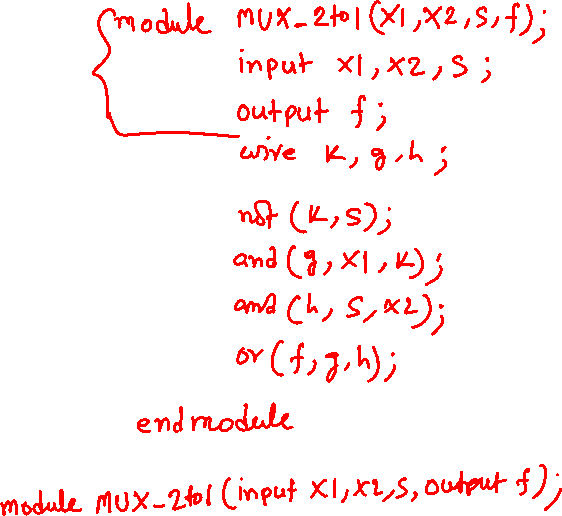 module MUX_2to1(X1,X2,S,f);
input X1,X2,S;
output f;
wire k,g,h;
not(k,S);
and(g,X1,k);
and(h,S,X2);
or(f,g,h);
endmodule
module MUX_2to1(input X1,X2,S,output f);